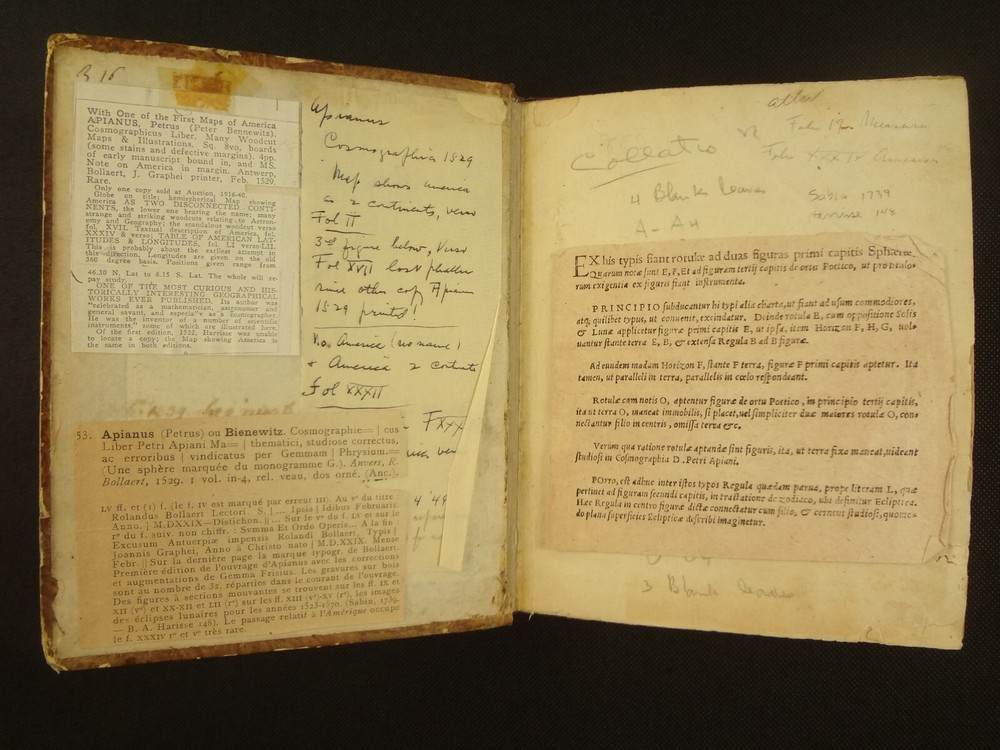 B 16
With One of the First Maps of America
APIANUS, Petrus (Peter Bennewitz).
Cosmographicus Liber. Many Woodcut
Maps & Illustrations. Sq. 8vo, boards
(some stains and defective margins). 4pp.
of early manuscript bound in, and MS.
Note on America in margin. Antwerp,
Bollaert, J. Graphei printer, Feb. 1529.
Rare.
Only one copy sold at Auction, 1916-40.
Globe on title; hemispherical Map showing
America AS TWO DISCONNECTED CONTI-
NENTS, the lower one bearing the name; many
strange and striking woodcuts relating to Astron-
omy and Geography; the scandalous woodcut verso
fol. XVII. Textual description of America, fol.
XXXIV & verso; TABLE OF AMERICAN LAT-
ITUDES & LONGITUDES, fol. LI verso-LII.
This is probably about the earliest attempt in
this direction. Longitudes are given on the old
360 degree basis. Positions given range from
46.30 N. Lat to 8.15 S. Lat. The whole will re-
pay study.
ONE OF THE MOST CURIOUS AND HIS-
TORICALLY INTERESTING GEOGRAPHICAL
WORKS EVER PUBLISHED. Its author was
"celebrated as a mathematician, astronomer and
general savant, and especially as a cosmographer.
He was the inventor of a number of scientific
instruments," some of which are illustrated here.
Of the first edition, 1532, Harrisse was unable
to locate a copy; the Map showing America is
the same in both editions.
Apianus
Cosmographica 1529
Map shows America
as 2 continents, verso
Fol II
3rd figure below, Verso
Fol XVII lost
since other copy Apian
1529 printed!
No. America (no name)
+ America 2
Fol XXXII
FXXX
4 '49
53. Apianus (Petrus) ou Bienewitz. Cosmographie= | cus
Liber Petri Apiani Ma= | thematici, studiose correctus,
ac erroribus | vindicatus per Gemmam | Physium.=
(Une sphère marquée du monogramme G.). Anvers, R.
Bollaert, 1529. 1 vol. in-4, rel. veau, dos orné. (Anc.).
LV ff. et (1) f. (le f. IV est marqué par erreur III). Au vº du titre
Rolandus Bollaert Lectori. S. | ... Ipsis | Idibus Februariis.
Anno. | M.DXXIX—Distichon. || ... Sur le vº du f. IX et sur le
rº du f. suiv. non chiffr. : Svmma Et Ordo Operis... A la fin :
Excusum Antuerpiæ impensis Rolandi Bollaert, Typis |
Joannis Graphei, Anno à Christo nato | M.D.XXIX. Mense
Febr. || Sur la dernière page la marque typogr. de Bollaert.
Première édition de l'ouvrage d'Apianus avec les corrections
et augmentations de Gemma Frisius. Les gravures sur bois
sont au nombre de 32, réparties dans le courant de l'ouvrage.
Des figures à sections mouvantes se trouvent sur les ff. IX et
XII (vº) et XX-XII et LII (rº) sur les ff. XIII (vº)-XV (rº), les images
des éclipses lunaires pour les années 1523-1570. (Sabin, 1739.
— B. A. Harisse 148). Le passage relatif à l'Amérique occupe
le f. XXXIV rº et vº très rare.
Folio XXXIV America
Collatio
4 Blank leaves
A-A4
Sabin 1739
Harrisse 148
EX his typis fiant rotulæ ad duas figuras primi capitis Sphæræ.
Quarum notæ sunt E, F. Et ad figuram tertij capitis de ortu Poëtico, ut pro titulo-
rum exigentia ex figuris fiant instrumenta.
PRINCIPIO subducantur hi typi alia charta, ut fiant ad usum commodiores,
atq; quilibet typus, ut conuenit, excindatur. Deinde rotula E, cum oppositione Solis
& Lunæ applicetur figuræ primi capitis E, ut ipsa, item Horizon F, H, G, uol-
uantur stante terra E, B, & extensa Regula B ad B figuræ.
Ad eundem modum Horizon F, stante F terra, figuræ F primi capitis aptetur. Ita
tamen, ut paralleli in terra, parallelis in cœlo respondeant.
Rotulæ cum notis O, aptentur figuræ de ortu Poëtico, in principio tertij capitis,
ita ut terra O, maneat immobilis, si placet, uel simpliciter duæ maiores rotulæ O, con-
nectantur filo in centris, omissa terra &c.
Verum qua ratione rotulæ aptandæ sint figuris, ita, ut terra fixa maneat, uideant
studiosi in Cosmographia D. Petri Apiani.
POrrò, est adhuc inter istos typos Regula quædam parua, prope literam L, quæ
pertinet ad figuram secundi capitis, in tractatione de zodiaco, ubi definitur Ecliptica.
Hæc Regula in centro figuræ dictæ connectatur cum filo, & cernent studiosi, quomo-
do plana superficies Eclipticæ describi imaginetur.
3 Blank leaves